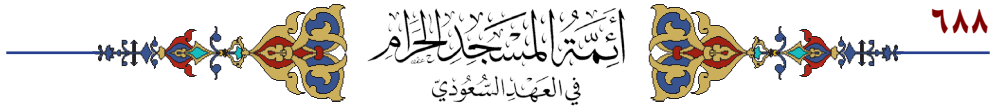 ٦٨٨
أَئِمَّةُ المَسْجِدِ الحَرَامِ
فِي العَهْدِ السُّعُودِيِّ